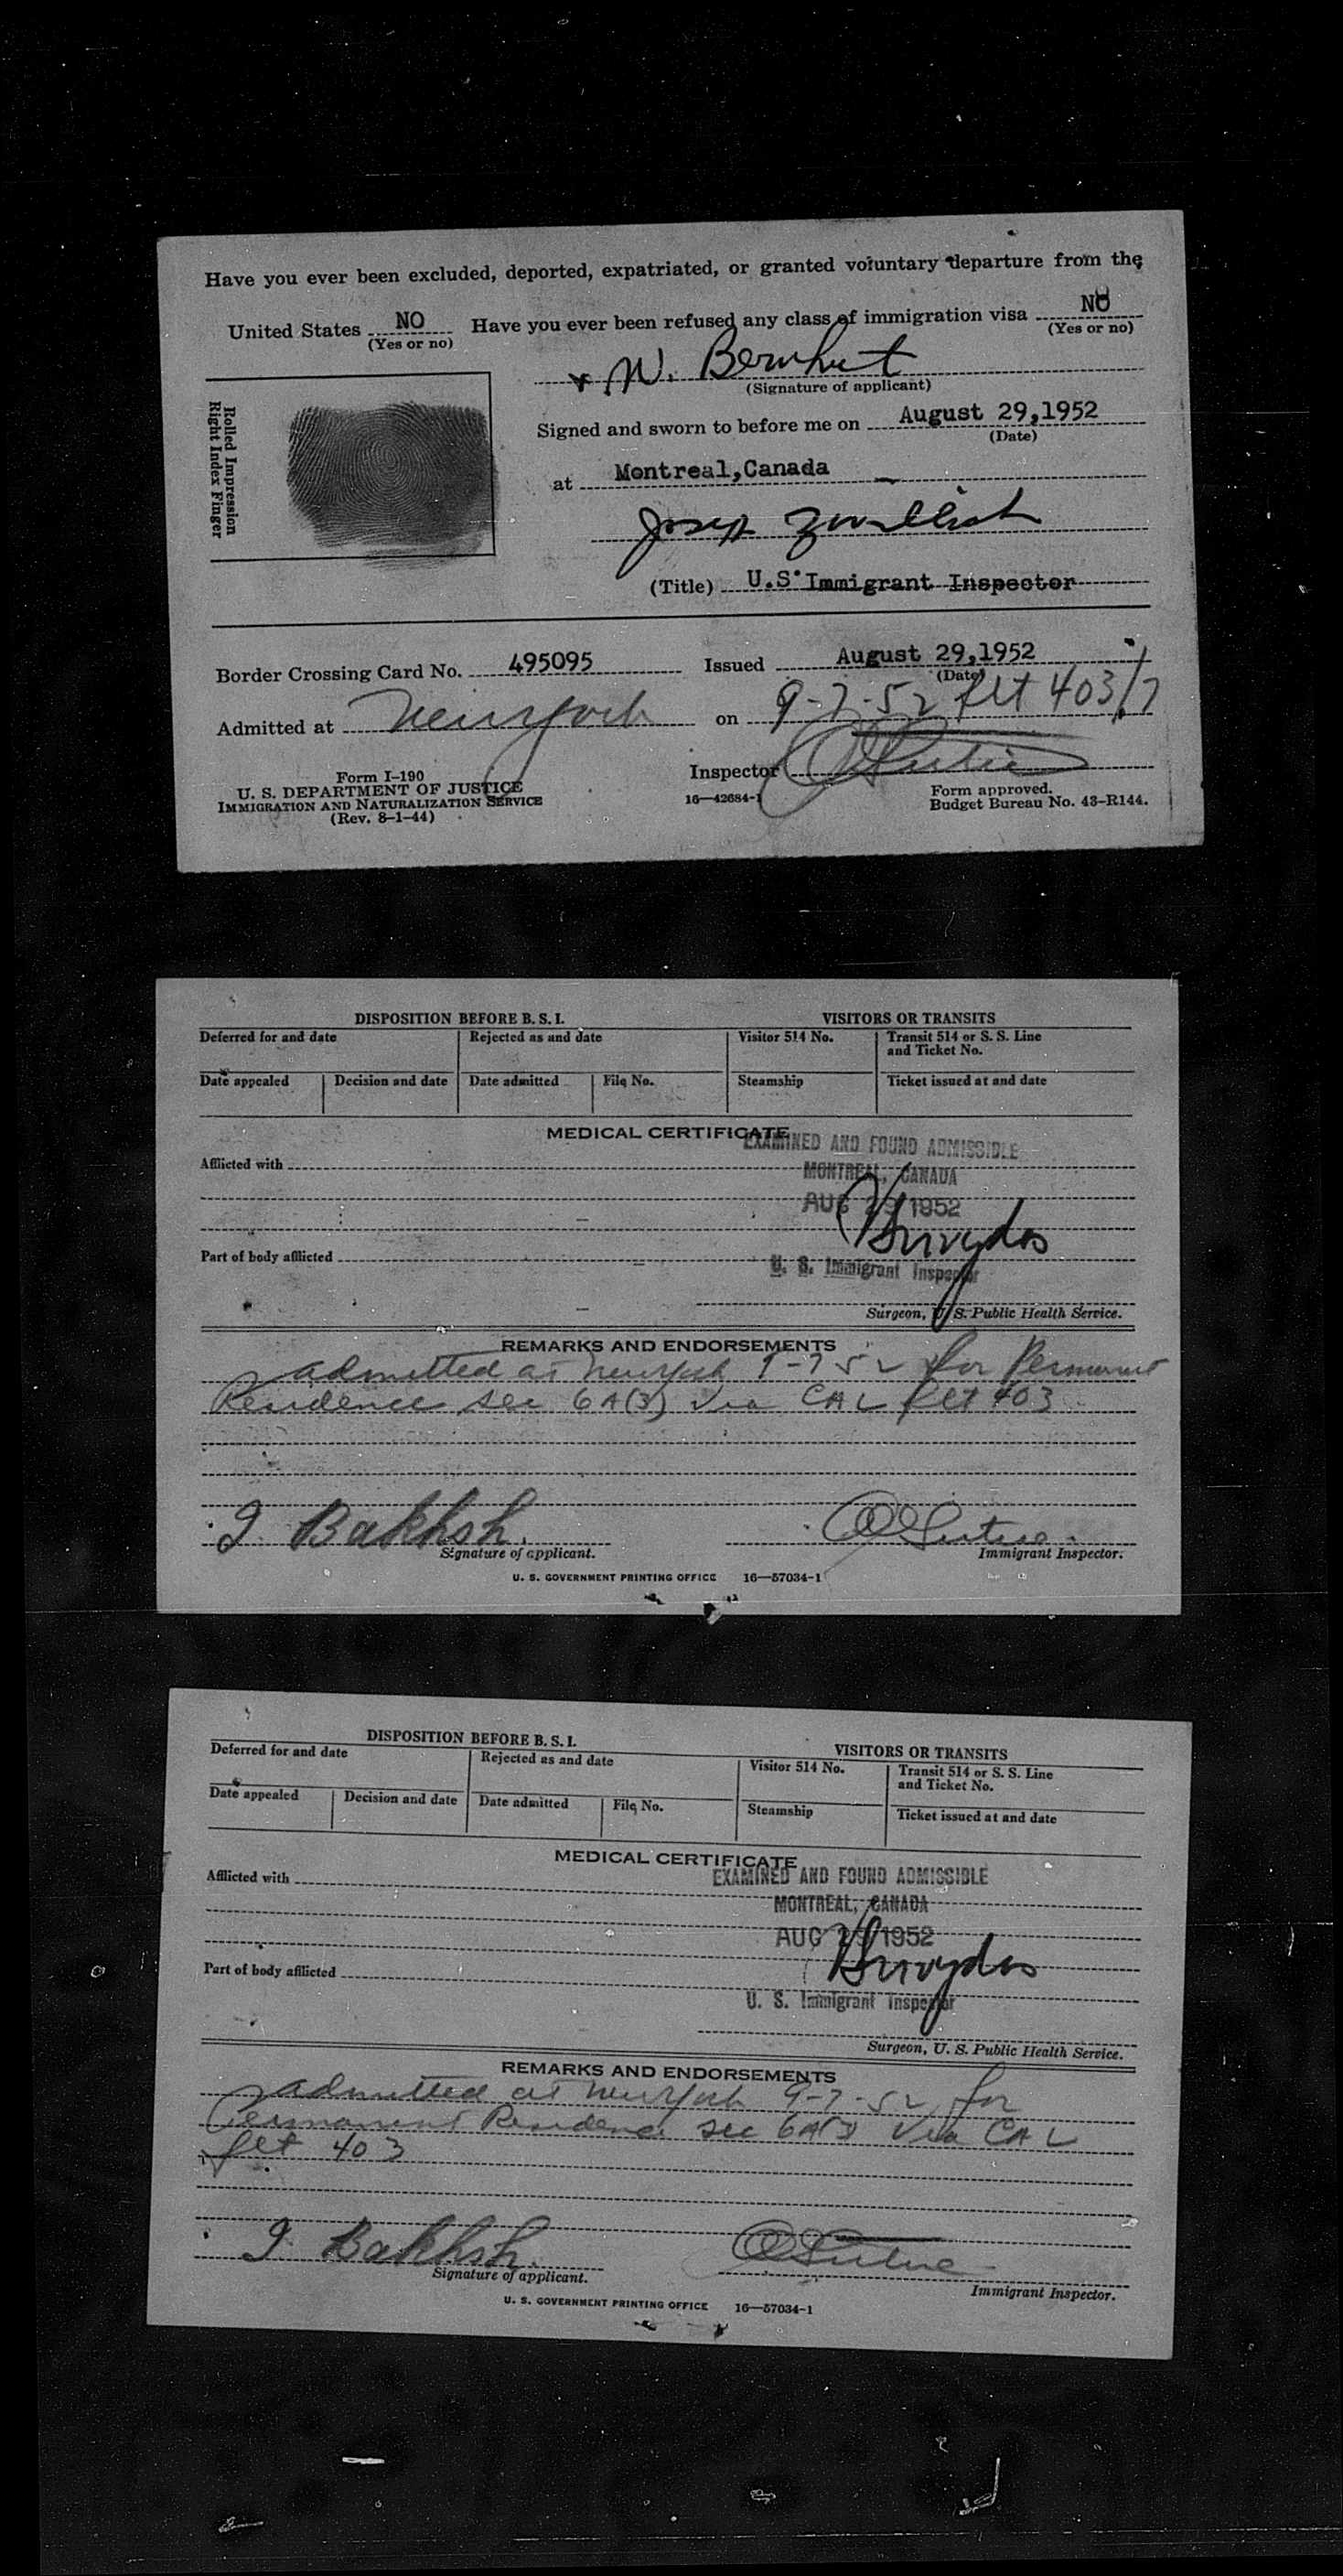 Have you ever been excluded, deported, expatriated, or granted voluntary departure from the
United States NO Have you ever been refused any class of immigration visa NO
(Yes or no) (Yes or no)
W. Bernhut
(Signature of applicant)
Rolled Impression
Right Index Finger
Signed and sworn to before me on August 29,1952
(Date)
at Montreal,Canada
Joseph
(Title) U.S. Immigrant Inspector
Border Crossing Card No. 495095 Issued August 29,1952
(Date)
Admitted at New York on 9-7-52 flt 403/7
Inspector
Form I-190
U. S. DEPARTMENT OF JUSTICE
IMMIGRATION AND NATURALIZATION SERVICE
(Rev. 8-1-44)
16—42684-1
Form approved.
Budget Bureau No. 43-R144.
DISPOSITION BEFORE B. S. I. VISITORS OR TRANSITS
Deferred for and date Rejected as and date Visitor 514 No. Transit 514 or S. S. Line
and Ticket No.
Date appealed Decision and date Date admitted File No. Steamship Ticket issued at and date
MEDICAL CERTIFICATE
EXAMINED AND FOUND ADMISSIBLE
Afflicted with
MONTREAL, CANADA
AUG 29 1952
Part of body afflicted
U. S. Immigrant Inspector
Surgeon, U. S. Public Health Service.
REMARKS AND ENDORSEMENTS
admitted at New York 9-7 52 for Permanent
Residence sec 6A(3) via CAL flt 403
I Bakhsh.
Signature of applicant. Immigrant Inspector.
U. S. GOVERNMENT PRINTING OFFICE 16—57034-1
DISPOSITION BEFORE B. S. I. VISITORS OR TRANSITS
Deferred for and date Rejected as and date Visitor 514 No. Transit 514 or S. S. Line
and Ticket No.
Date appealed Decision and date Date admitted File No. Steamship Ticket issued at and date
MEDICAL CERTIFICATE
EXAMINED AND FOUND ADMISSIBLE
Afflicted with
MONTREAL, CANADA
AUG 29 1952
Part of body afflicted
U. S. Immigrant Inspector
Surgeon, U. S. Public Health Service.
REMARKS AND ENDORSEMENTS
admitted at New York 9-7-52 for
Permanent Residence sec 6A(3) Via CAL
flt 403
I Bakhsh.
Signature of applicant. Immigrant Inspector.
U. S. GOVERNMENT PRINTING OFFICE 16—57034-1